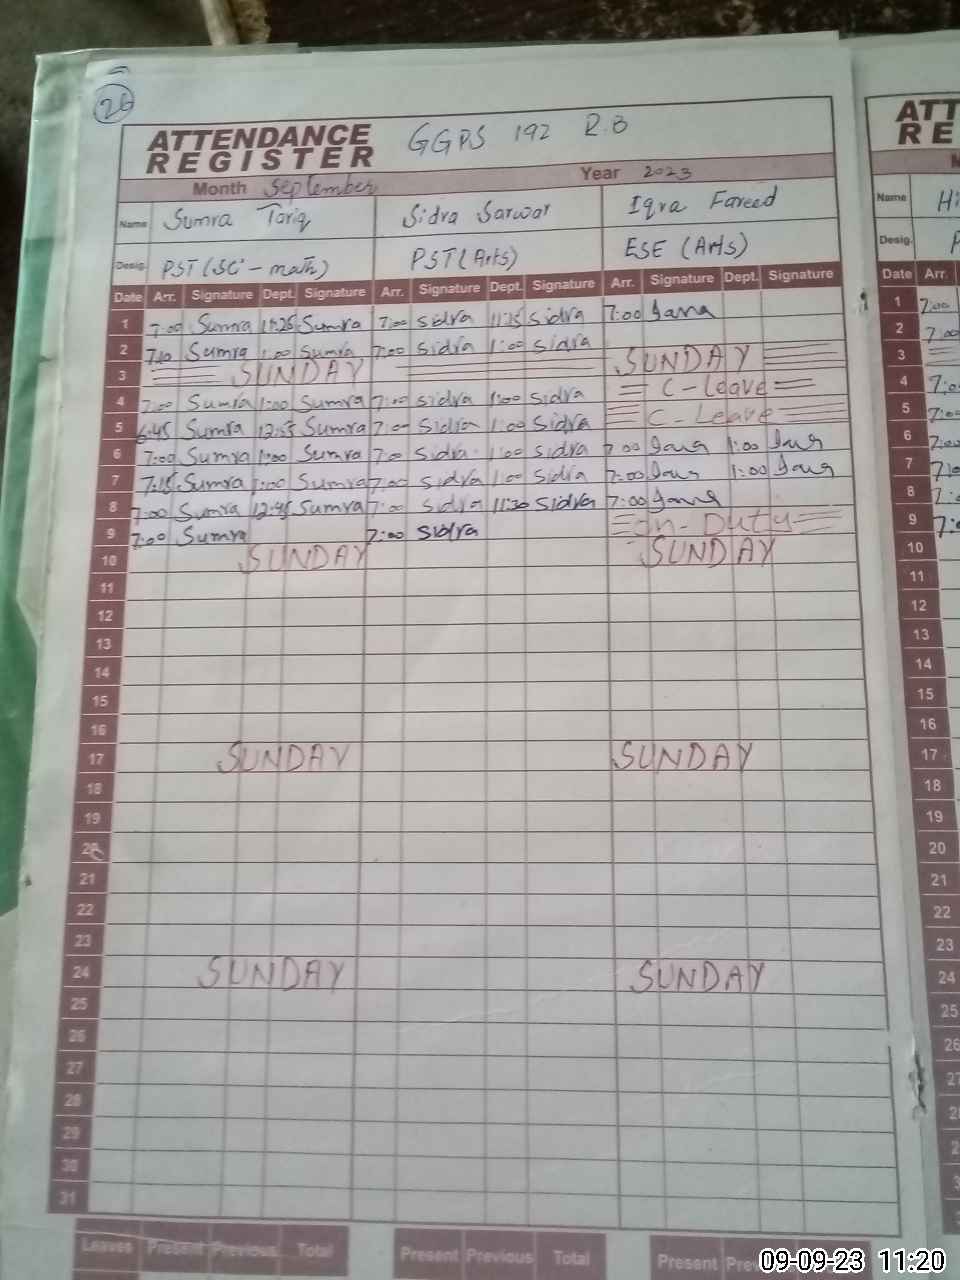 26
ATTENDANCE REGISTER GGPS 192 R.B
Month September Year 2023
Name Sumra Tariq Sidra Sarwar Iqra Fareed
Desig. PST (SC - math) PST (Arts) ESE (Arts)
Date Arr. Signature Dept. Signature Arr. Signature Dept. Signature Arr. Signature Dept. Signature
1 7:00 Sumra 11:25 Sumra 7:00 Sidra 11:25 Sidra 7:00
2 7:10 Sumra 1:00 Sumra 7:00 Sidra 1:00 Sidra SUNDAY
3 SUNDAY
4 7:00 Sumra 1:00 Sumra 7:00 Sidra 1:00 Sidra C-Leave
5 6:45 Sumra 12:55 Sumra 7:00 Sidra 1:00 Sidra C-Leave
6 7:00 Sumra 1:00 Sumra 7:00 Sidra 1:00 Sidra 7:00 1:00
7 7:15 Sumra 1:00 Sumra 7:00 Sidra 1:00 Sidra 7:00 1:00
8 7:00 Sumra 12:45 Sumra 7:00 Sidra 11:30 Sidra 7:00
9 7:00 Sumra 7:00 Sidra On-Duty
10 SUNDAY SUNDAY
11
12
13
14
15
16
17 SUNDAY SUNDAY
18
19
20
21
22
23
24 SUNDAY SUNDAY
25
26
27
28
29
30
31
Leaves Present Previous Total Present Previous Total Present
ATT
RE
Name Hi
Desig. P
Date Arr.
1 7:00
2 7:00
3
4
5
6 7:00
7
8
9
10
11
12
13
14
15
16
17
18
19
20
21
22
23
24
25
26
27
09-09-23 11:20